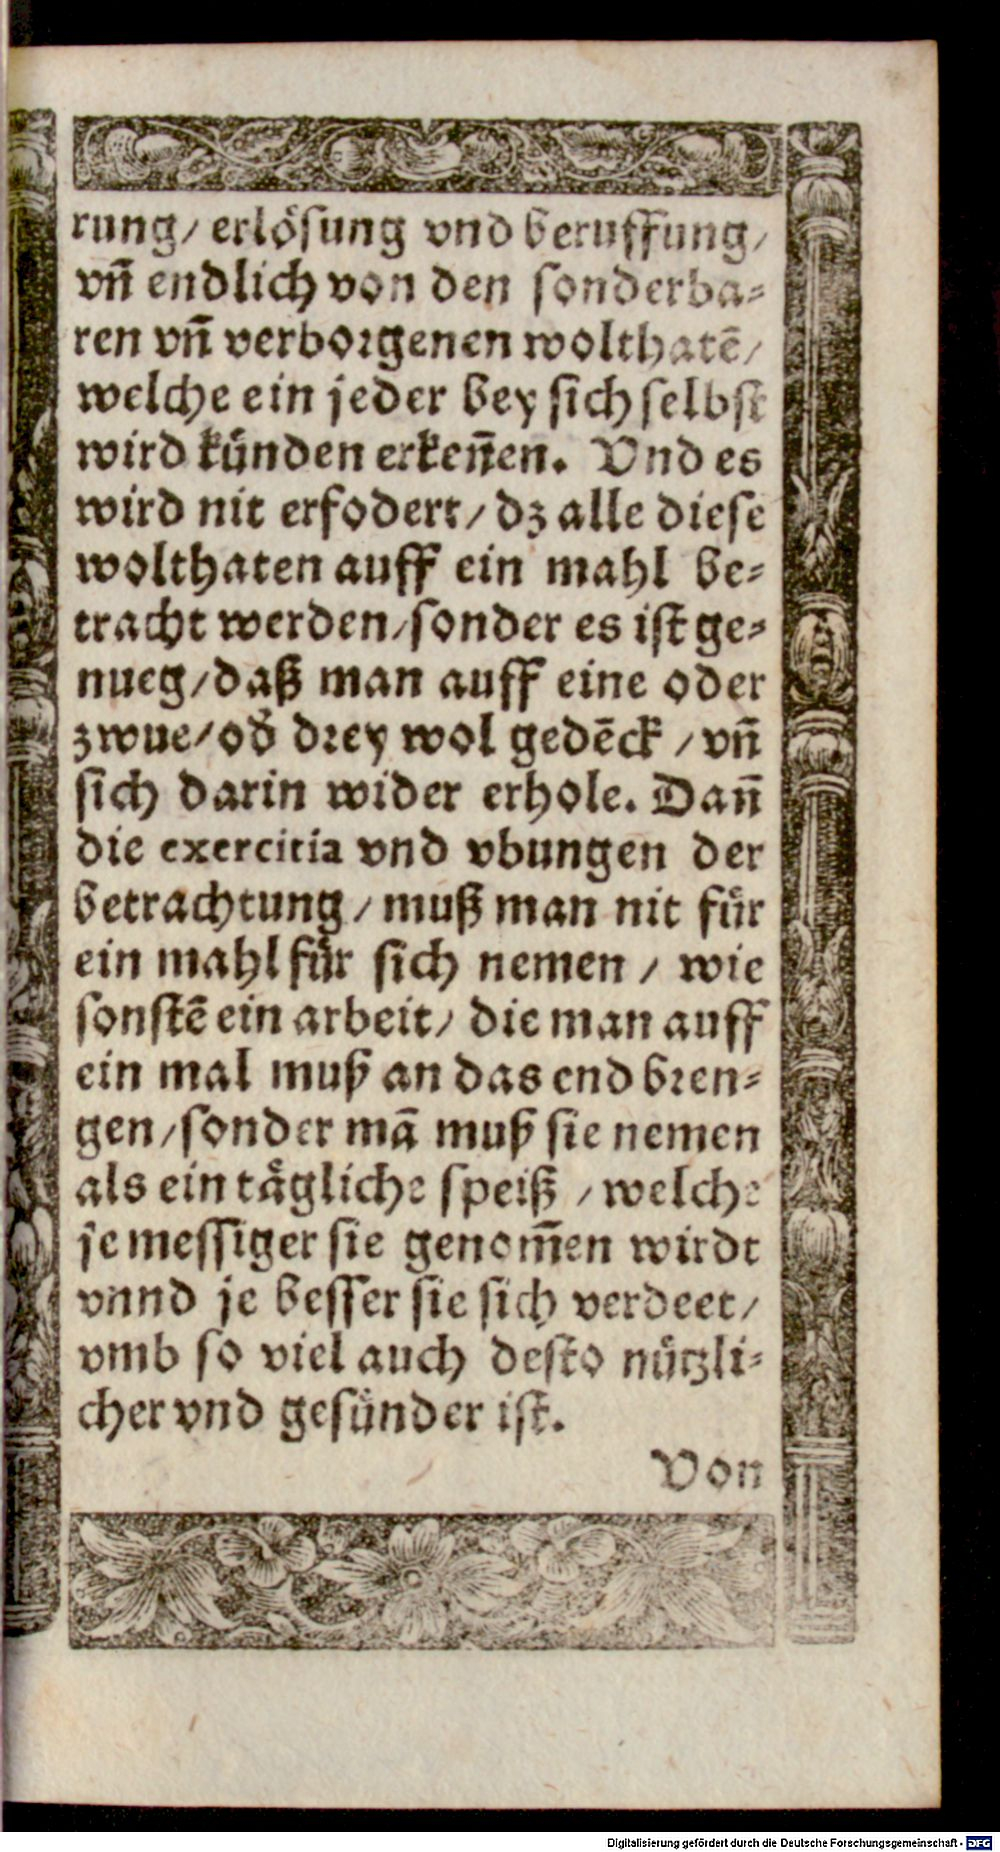 rung/ erlösung vnd beruffung/
vñ endlich von den sonderba-
ren vñ verborgenen wolthatē/
welche ein jeder bey sich selbst
wird künden erkeñen. Vnd es
wird nit erfodert/ dz alle diese
wolthaten auff ein mahl be-
tracht werden/sonder es ist ge-
nueg/daß man auff eine oder
zwue/od̄ drey wol gedēck / vñ
sich darin wider erhole. Dañ
die exercitia vnd vbungen der
betrachtung/ muß man nit für
ein mahl für sich nemen / wie
sonstē ein arbeit/ die man auff
ein mal muß an das end bren-
gen/sonder mā muß sie nemen
als ein tägliche speiß / welche
je messiger sie genom̄en wirdt
vnnd je besser sie sich verdeet/
vmb so viel auch desto nützli-
cher vnd gesünder ist.
Von
Digitalisierung gefördert durch die Deutsche Forschungsgemeinschaft - DFG